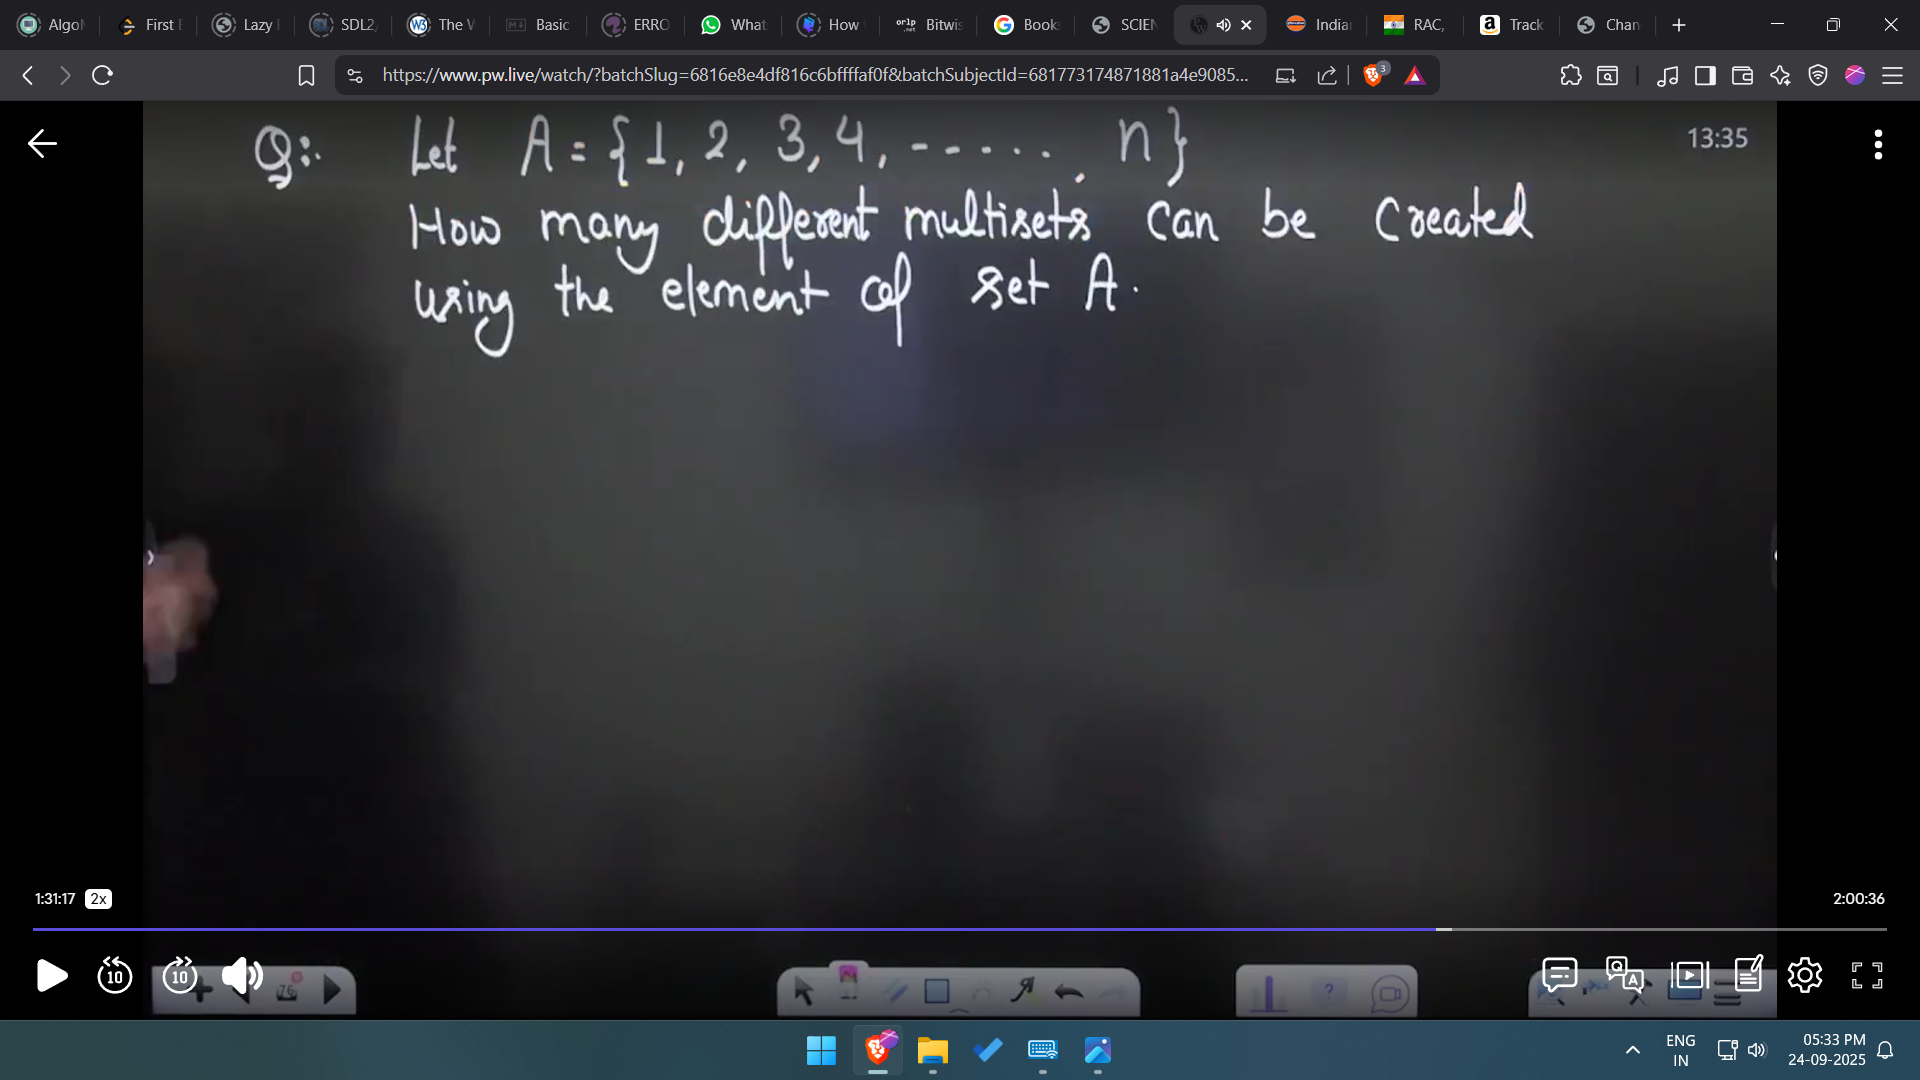 Algo First E Lazy SDL2, The V Basic ERRO What How Bitwis Book SCIEN India RAC, Track Chan
https://www.pw.live/watch/?batchSlug=6816e8e4df816c6bffffaf0f&batchSubjectId=681773174871881a4e9085... 3
Q:. Let A = {1, 2, 3, 4, ------, n} 13:35
How many different multisets can be created
using the element of set A.
1:31:17 2x 2:00:36
10 10 76 ? Q A
ENG 05:33 PM
IN 24-09-2025